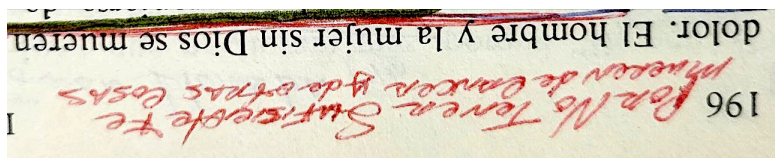 196 Por No Tener Fe I
mueren de Cancer y de otras Cosas
dolor. El hombre y la mujer sin Dios se mueren